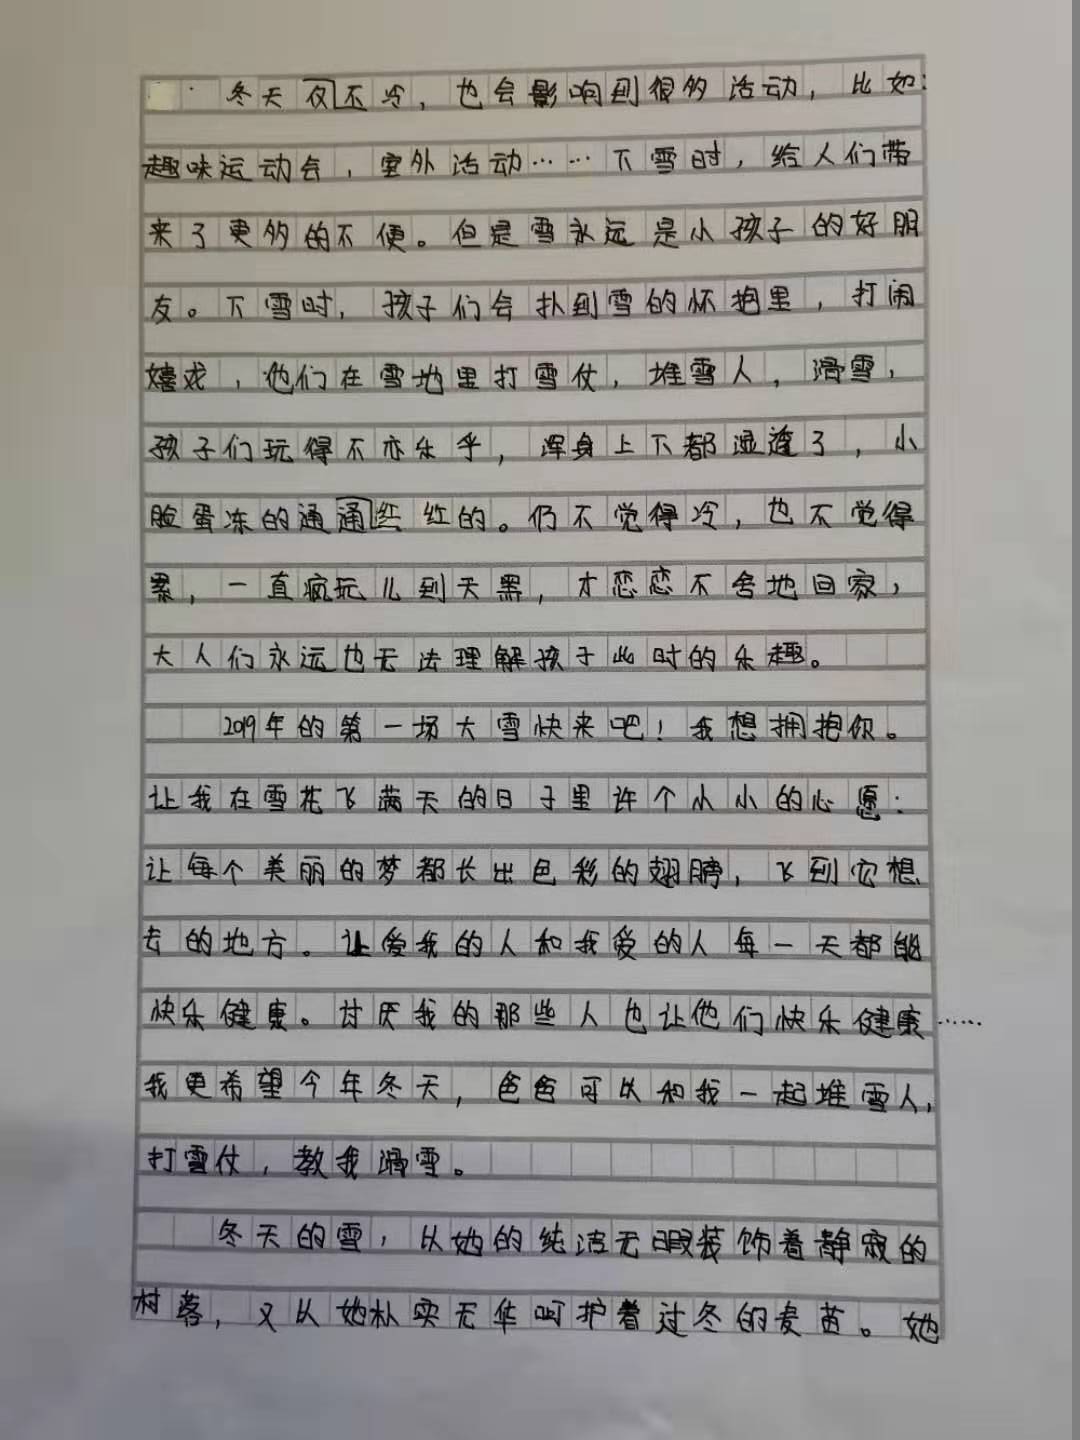 冬天仅不冷，也会影响到很多活动，比如：
趣味运动会，室外活动……下雪时，给人们带
来了更多的不便。但是雪永远是小孩子的好朋
友。下雪时，孩子们会扑到雪的怀抱里，打闹
嬉戏，他们在雪地里打雪仗，堆雪人，滑雪，
孩子们玩得不亦乐乎，浑身上下都湿透了，小
脸蛋冻的通通红红的。仍不觉得冷，也不觉得
累，一直疯玩儿到天黑，才恋恋不舍地回家，
大人们永远也无法理解孩子此时的乐趣。
2019年的第一场大雪快来吧！我想拥抱你。
让我在雪花飞满天的日子里许个小小的心愿：
让每个美丽的梦都长出色彩的翅膀，飞到它想
去的地方。让爱我的人和我爱的人每一天都能
快乐健康。讨厌我的那些人也让他们快乐健康……
我更希望今年冬天，爸爸可以和我一起堆雪人，
打雪仗，教我滑雪。
冬天的雪，以她的纯洁无暇装饰着静寂的
村落，又以她朴实无华呵护着过冬的麦苗。她